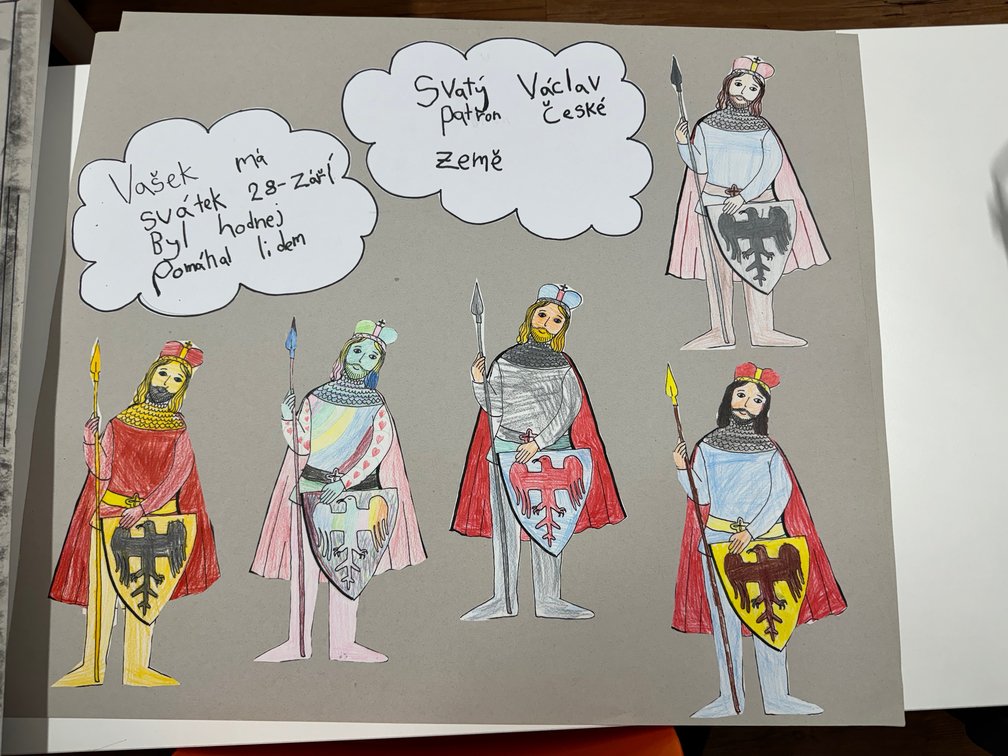 Vašek má
svátek 28-Září
Byl hodnej
pomáhal lidem
Svatý Václav
patron České
země